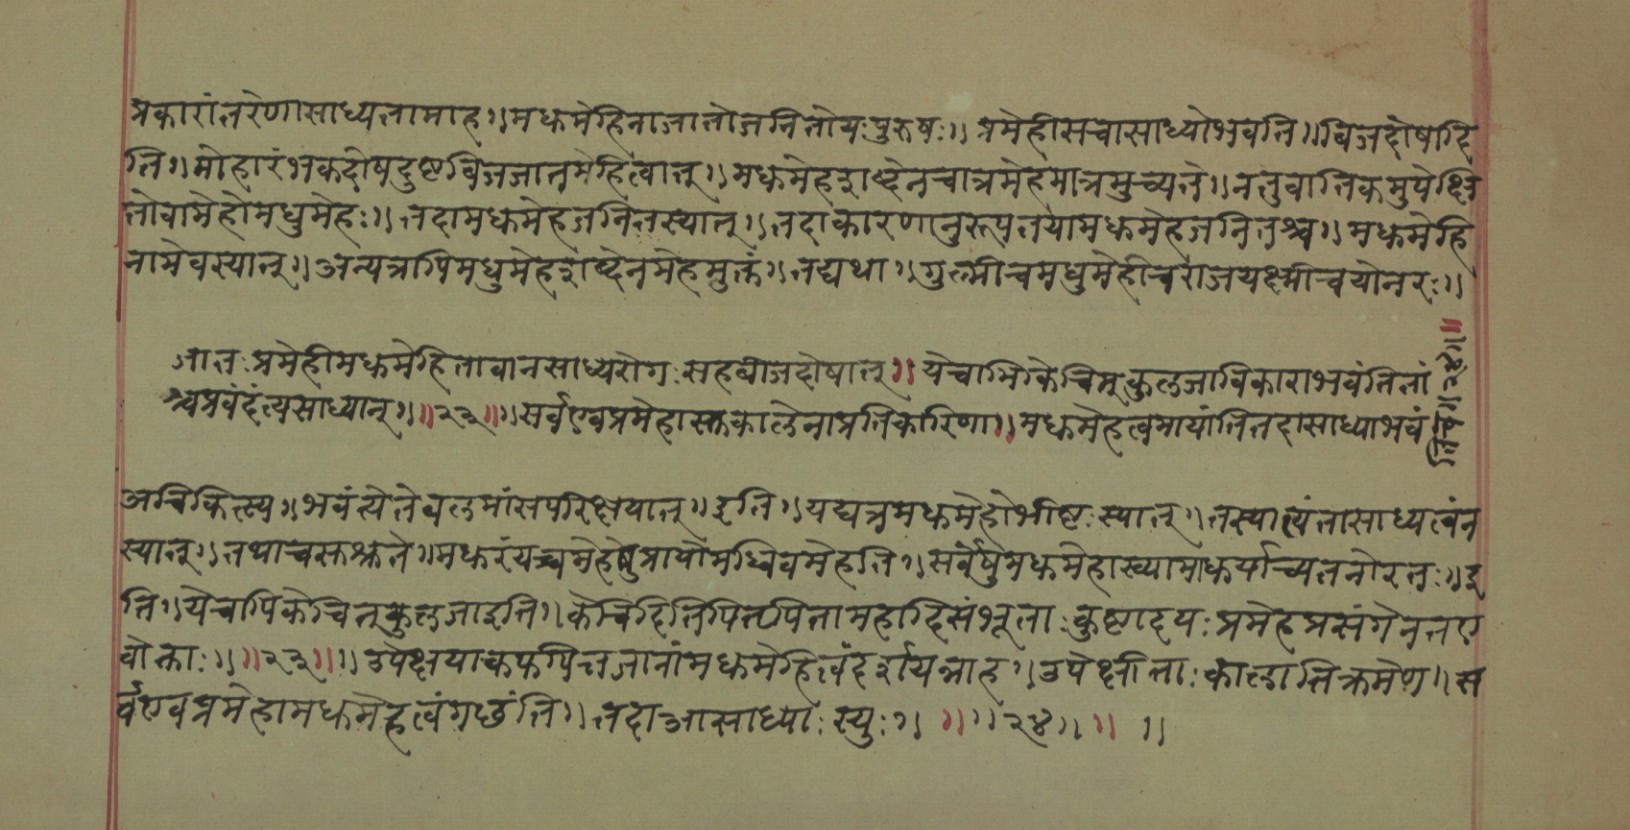 प्रकारांतरेणासाध्यतामाह॥मधुमेहिनाजातोजनितोयःपुरुषः॥प्रमेहीसचासाध्योभवति॥बिजदोषादि
ति॥मोहारंभकदोषदुष्टबिजजातमेहित्वात्॥मधुमेहशब्देनचात्रमेहमात्रमुच्यते॥नतुवातिकमुपेक्षि
तोवामेहोमधुमेहः॥तदामधुमेहजनितस्यात्॥तदाकारणानुरूपतयामधुमेहजनितश्च॥मधुमेहि
नामेवस्यात्॥अन्यत्रापिमधुमेहशब्देनमेहमुक्तं॥तद्यथा॥गुल्मीचमधुमेहीचराजयक्ष्मीचयोनरः॥
जातःप्रमेहीमधुमेहितावानसाध्यरोगःसहबीजदोषात्॥येचाभिकेचित्कुलजाविकाराभवंतितां
श्चप्रवंदंत्यसाध्यान्॥॥२३॥॥सर्वएवप्रमेहास्तुकालेनाप्रतिकारिणा॥मधुमेहत्वमायांतितदासाध्याभवं
अचिकित्स्य॥भवंत्येतेबलमांसपरिक्षयात्॥इति॥यद्यत्रमधुमेहोभीष्टःस्यात्॥तस्यात्यंतासाध्यत्वंन
स्यात्॥तथाचसुश्रुते॥मधुरंयच्चमेहेषुप्रायोमध्विवमेहति॥सर्वेषुमधुमेहाख्यामाधुर्याच्चतनोरतः॥इ
ति॥येचापिकेचित्कुलजाइति॥केचिदितिपितृपितामहादिसंभूताःकुष्टादयःप्रमेहप्रसंगेनतए
वोक्ताः॥॥२३॥॥उपेक्षयाकफपित्तजानांमधुमेहित्वंदर्शयन्नाह॥उपेक्षीताःकालातिक्रमेण॥स
र्वएवप्रमेहामधुमेहत्वंगछंति॥तदाअसाध्याःस्युः॥॥॥२४॥॥॥